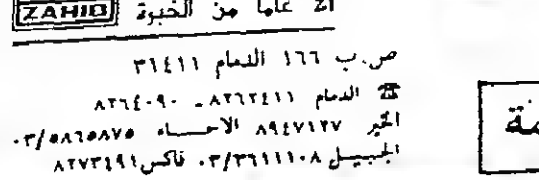 عاما من الخبرة ZAHID
ص.ب ١٦٦ الدمام ٣١٤١١
☎ الدمام ٨٢٦٢٤١١ ـ ٨٢٦٤٠٩٠
الخبر ٨٩٤٧١٢٧ الاحساء ٠٣/٥٨٦٥٨٧٥
الجبيل ٠٣/٣٦١١١٠٨ فاكس ٨٢٧٣٤٩١